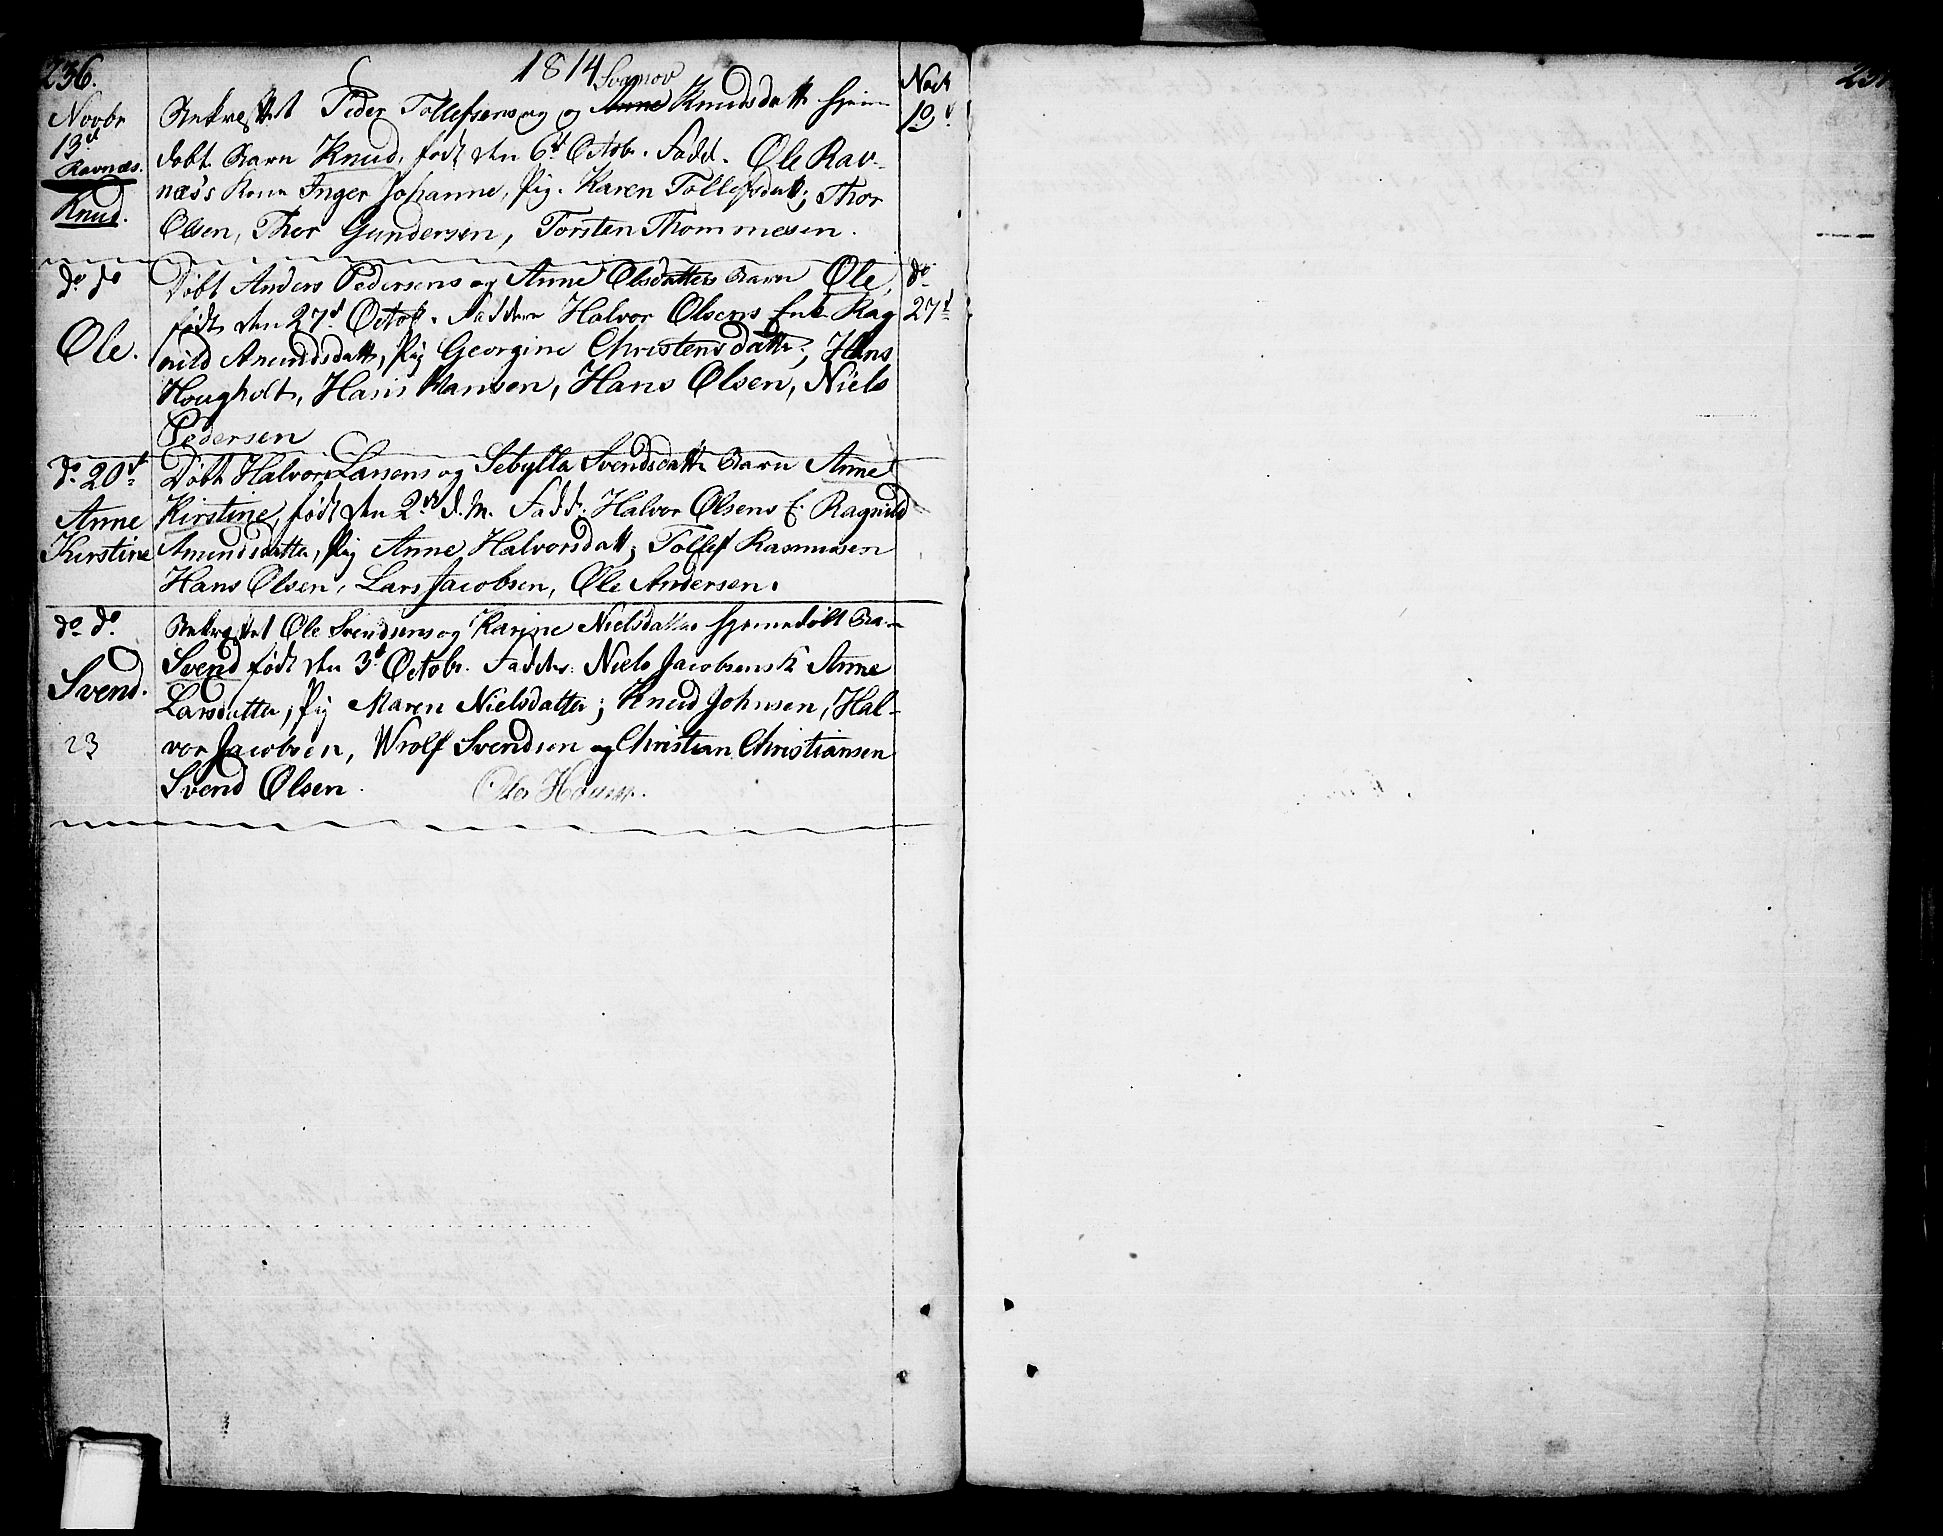 236.
1814
Novbr
13d
Ravnæs.
Knud.
Bekræftet Peder Tollefsens og Anne Knudsdatt hjem
døbt Barn Knud, født den 6d Octob. Fadd. Ole Rav-
næs's Kone Inger Johanne, Pig. Karen Tollefsdatt; Thor
Olsen, Thor Gundersen, Torsten Thommesen.
19d.
do do
Ole.
Døbt Anders Pedersens og Anne Olsdatters Barn Ole,
født den 27d Octob. Faddere Halvor Olsens Enke Rag
nild Amundsdatt, Pig Georgine Christensdatter; Hans
Hougholt, Hans Hansen, Hans Olsen, Niels
Pedersen
do
27d
do 20d
Anne
Kirstine
Døbt Halvor Larsens og Sebylla Svendsdatt Barn Anne
Kirstine, født den 2de d.M. Fadd: Halvor Olsens E. Ragnild
Amundsdatter, Pig Anne Halvorsdatt; Tollef Rasmusen
Hans Olsen, Lars Jacobsen, Ole Andersen.
do do.
Svend.
23
Bekræftet Ole Svendsens og Karine Nielsdatter hjemmedøbt Ba-
Svend født den 3d Octobr. Fadder: Niels Jacobsens K Anne
Larsdatter, Pig Maren Nielsdatter; Knud Johnsen, Hal-
vor Jacobsen, Wrolf Svendsen og Christian Christiansen
Svend Olsen.